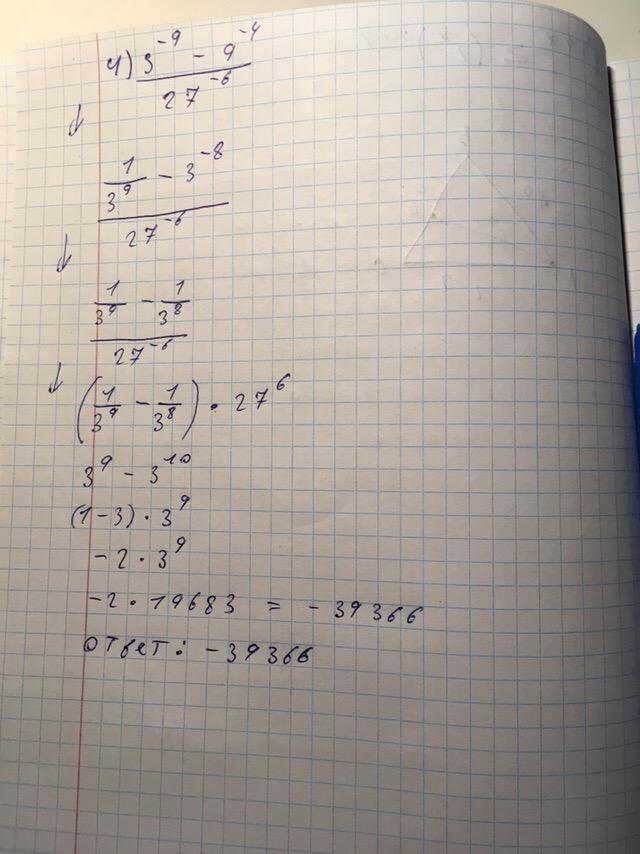 4) (3^-9 - 9^-4) / 27^-6
(1/3^9 - 3^-8) / 27^-6
(1/3^9 - 1/3^8) / 27^-6
(1/3^9 - 1/3^8) · 27^6
3^9 - 3^10
(1-3) · 3^9
-2 · 3^9
-2 · 19683 = -39366
ответ: -39366